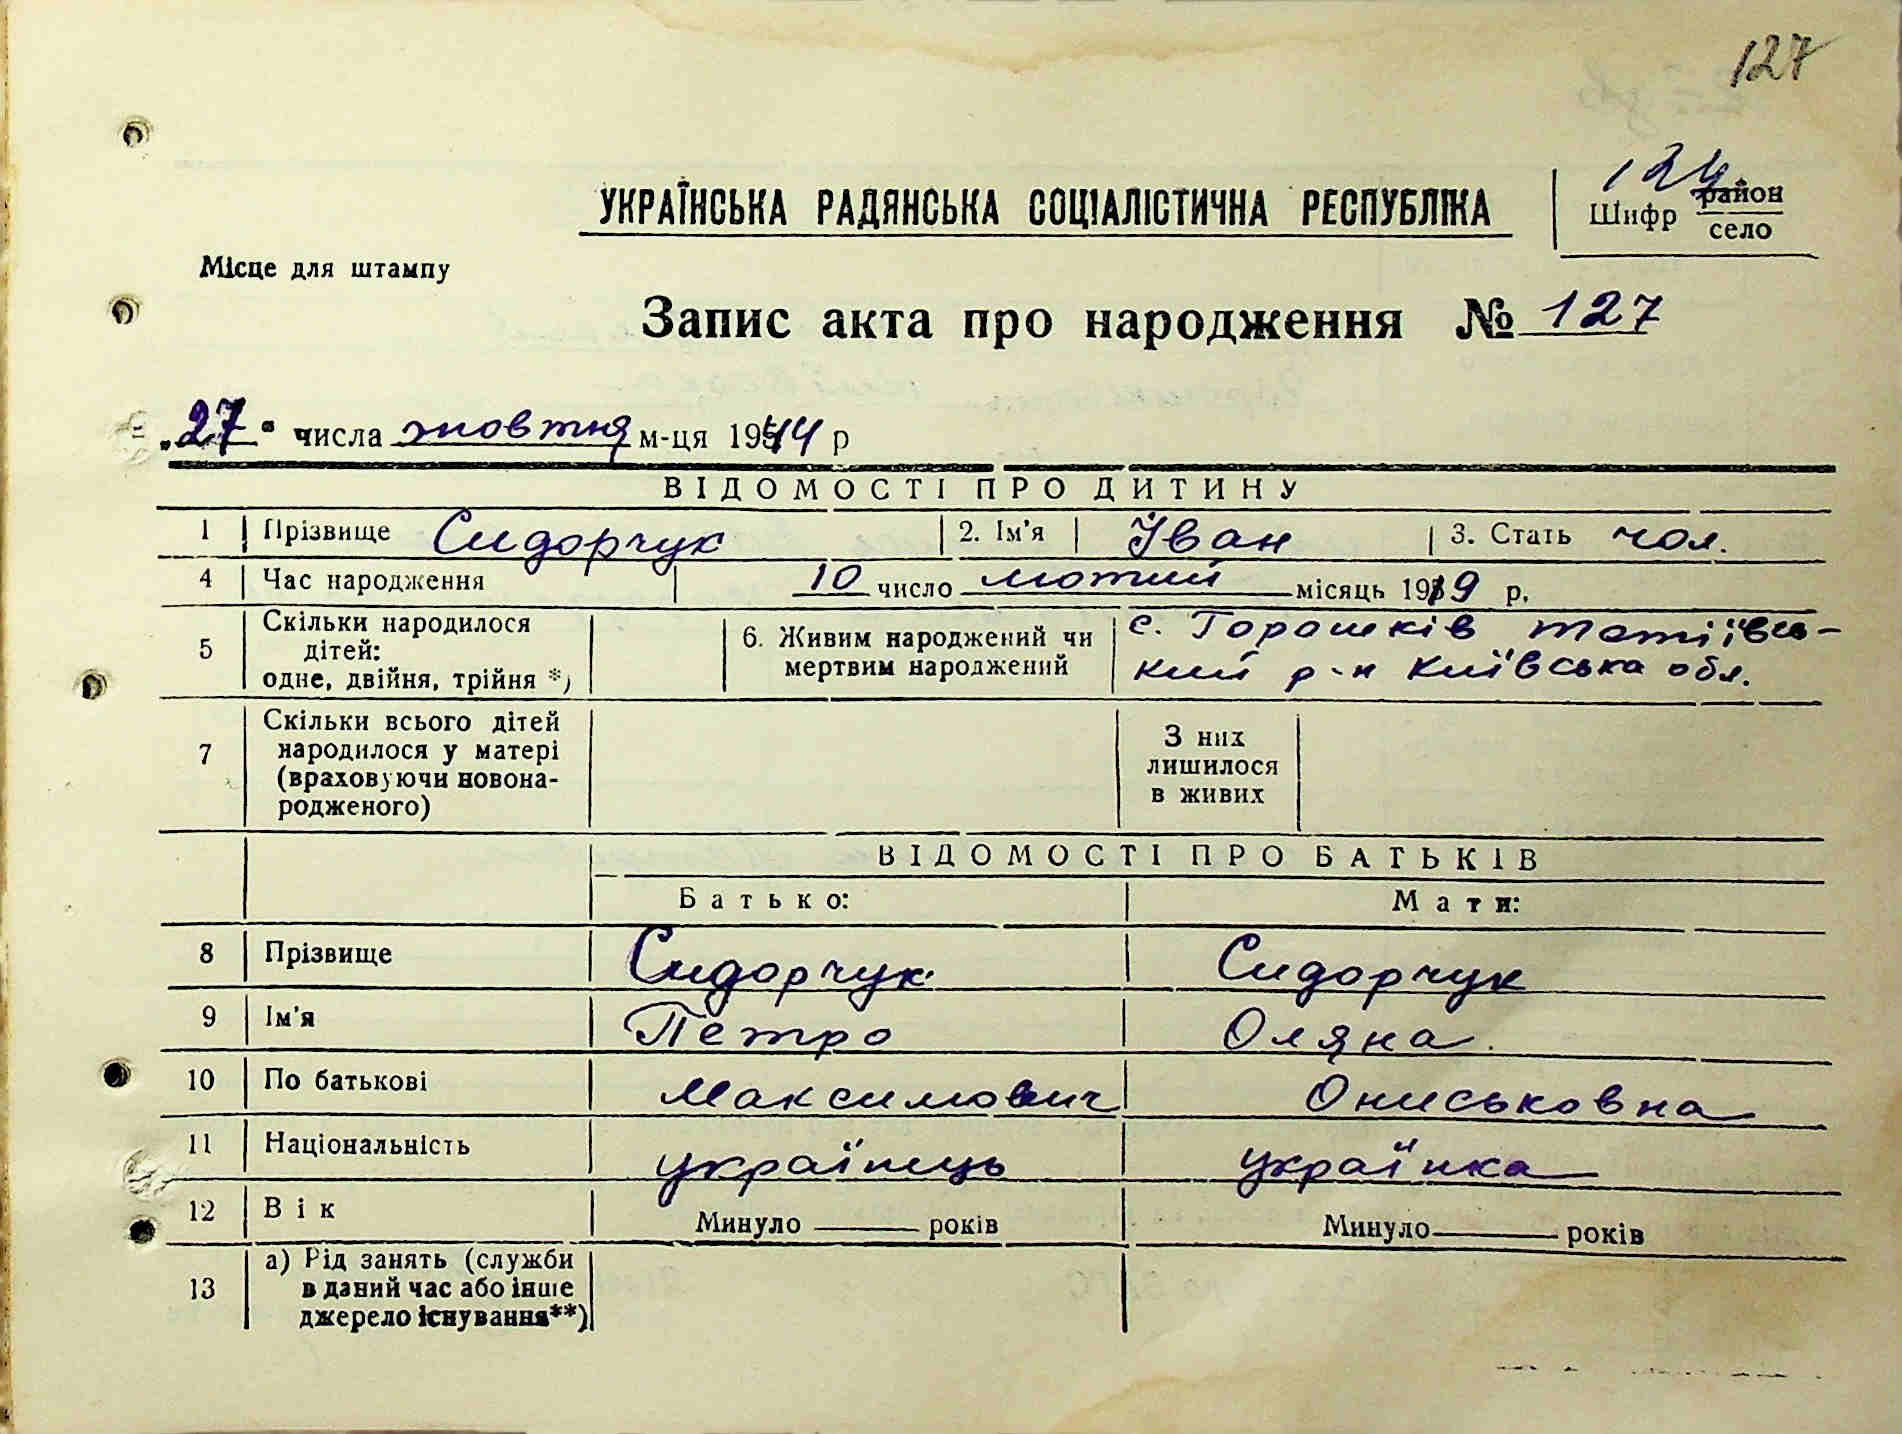 127
УКРАЇНСЬКА РАДЯНСЬКА СОЦІАЛІСТИЧНА РЕСПУБЛІКА
Шифр район
село
Місце для штампу
Запис акта про народження № 127
„27“ числа жовтня м-ця 1944 р
ВІДОМОСТІ ПРО ДИТИНУ
1 Прізвище Сидорчук 2. Ім'я Іван 3. Стать чол.
4 Час народження 10 число лютий місяць 1919 р.
5 Скільки народилося дітей: одне, двійня, трійня *) 6. Живим народжений чи мертвим народжений с. Горошків тетіївсь-
кий р-н Київська обл.
7 Скільки всього дітей народилося у матері (враховуючи новонародженого) З них лишилося в живих
ВІДОМОСТІ ПРО БАТЬКІВ
Батько: Мати:
8 Прізвище Сидорчук Сидорчук
9 Ім'я Петро Оляна
10 По батькові Максимович Ониськовна
11 Національність українець українка
12 Вік Минуло років Минуло років
13 а) Рід занять (служби
в даний час або інше
джерело існування**)